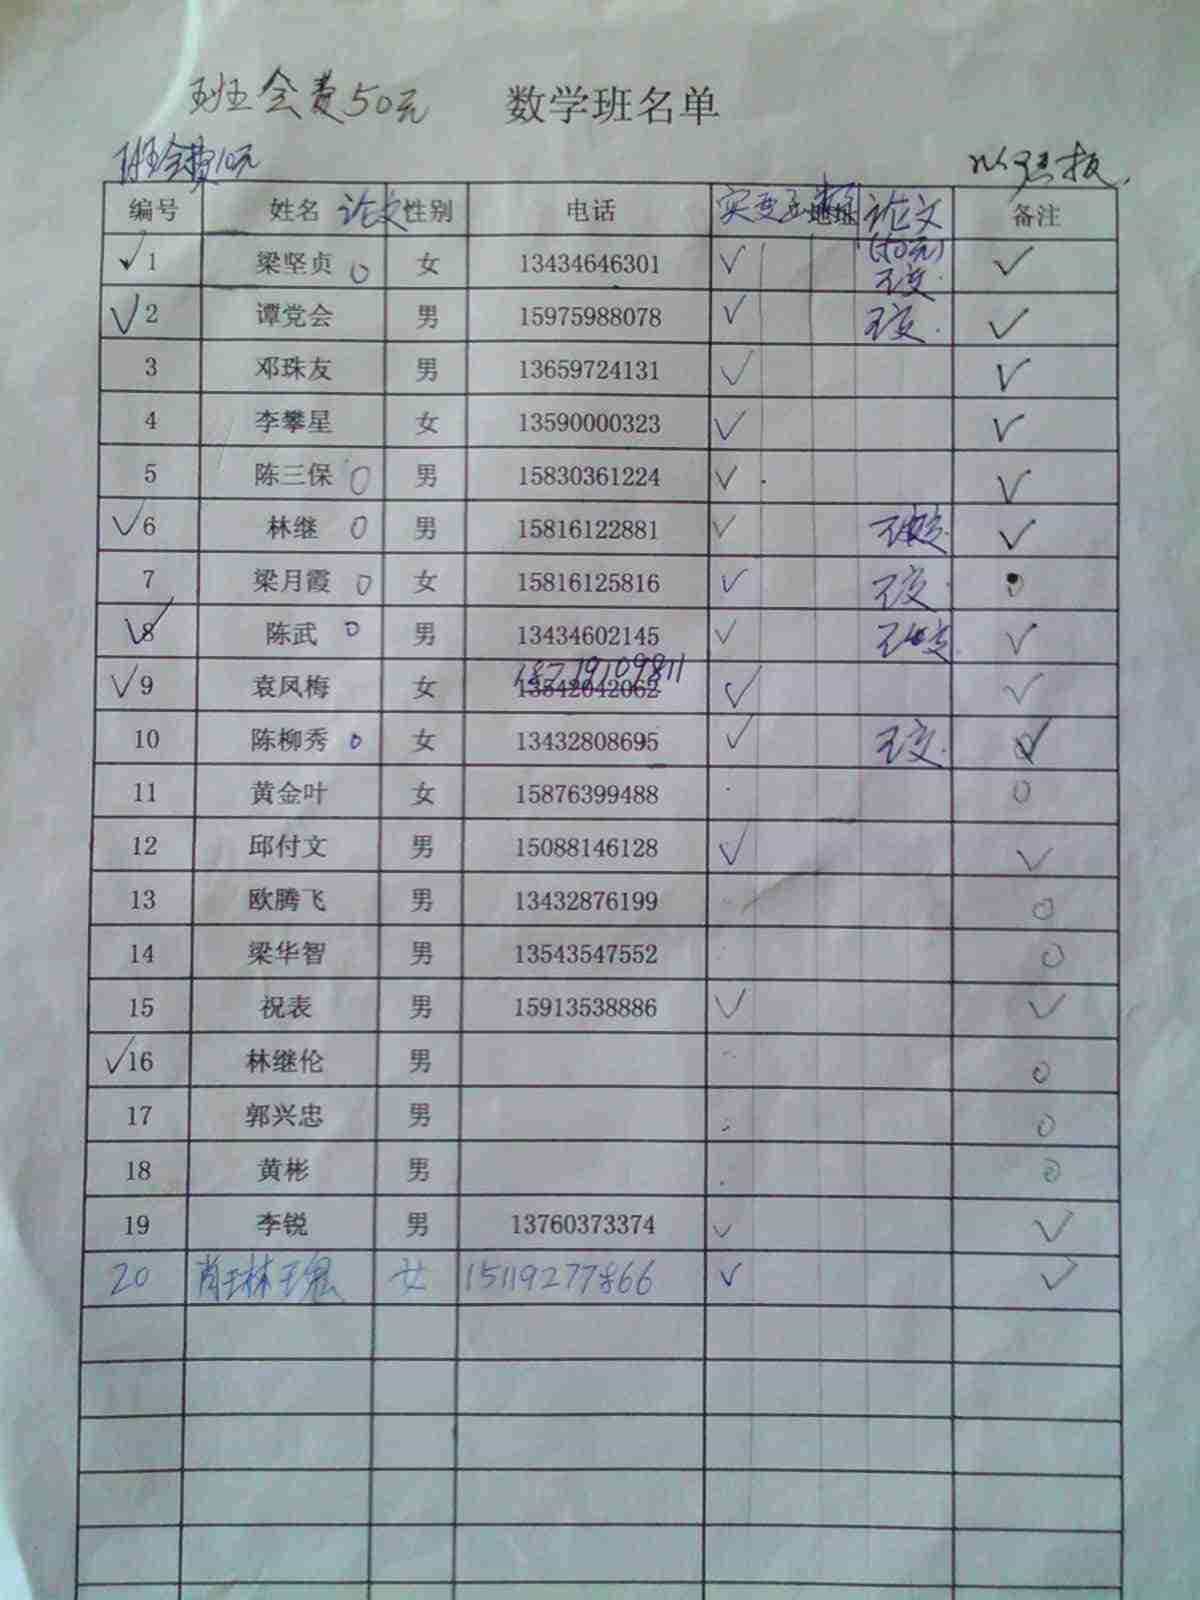 班会费50元 数学班名单
班会费10元
编号 姓名 论文 性别 电话 实变 论文 备注
(40元)
✓ 1 梁坚贞 0 女 13434646301 ✓ 不交. ✓
✓ 2 谭党会 男 15975988078 ✓ 不交. ✓
3 邓珠友 男 13659724131 ✓ ✓
4 李攀星 女 13590000323 ✓ ✓
5 陈三保 0 男 15830361224 ✓ ✓
✓ 6 林继 0 男 15816122881 ✓ ✓
7 梁月霞 0 女 15816125816 ✓ 不交.
✓ 8 陈武 0 男 13434602145 ✓ ✓
18719109811
✓ 9 袁凤梅 女 13542042062 ✓ ✓
10 陈柳秀 0 女 13432808695 ✓ 不交. ✓
11 黄金叶 女 15876399488 0
12 邱付文 男 15088146128 ✓ ✓
13 欧腾飞 男 13432876199 0
14 梁华智 男 13543547552 0
15 祝表 男 15913538886 ✓ ✓
✓ 16 林继伦 男 0
17 郭兴忠 男 0
18 黄彬 男 0
19 李锐 男 13760373374 ✓ ✓
20 女 15119277866 ✓ ✓